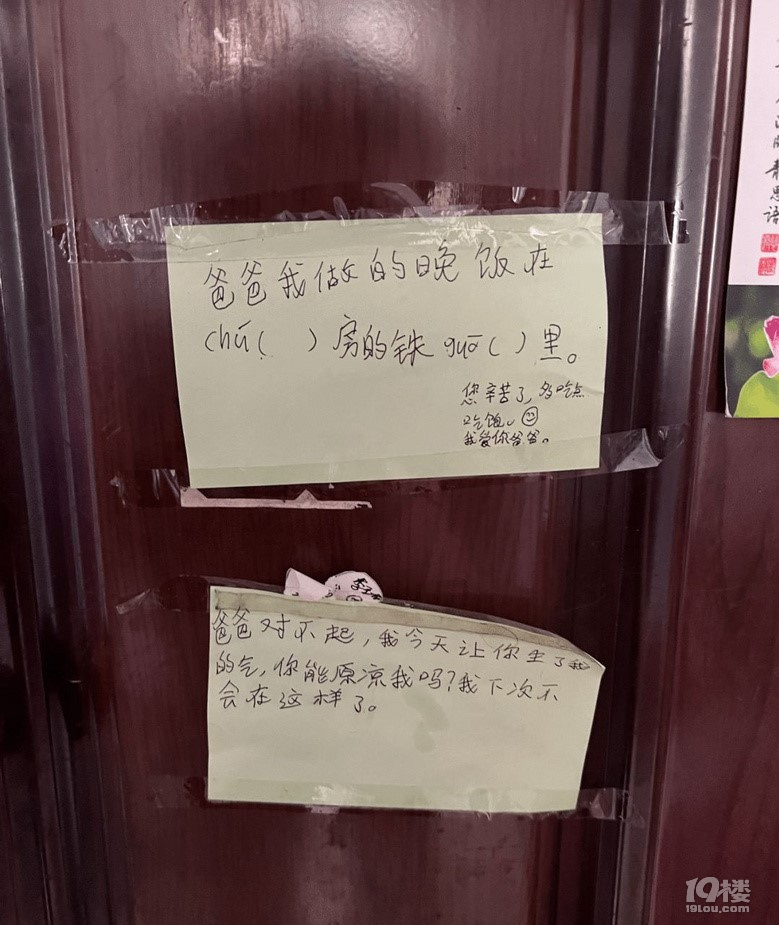 爸爸我做的晚饭在
chú( )房的铁guō( )里。
您辛苦了,多吃点
吃饱。
我爱你爸爸。
爸爸对不起,我今天让你生了我
的气,你能原凉我吗?我下次不
会在这样了。
静思语
19楼
19lou.com